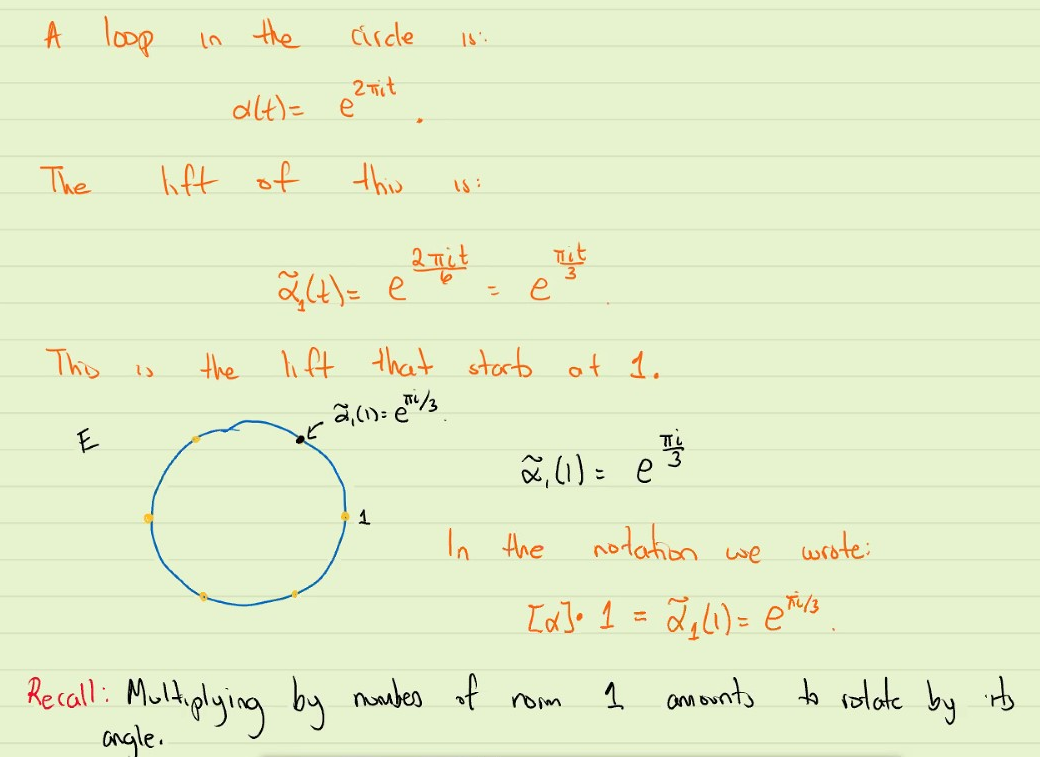 A loop in the circle is:
α(t) = e^{2πit}.
The lift of this is:
α̃₁(t) = e^{2πit/6} = e^{πit/3}.
This is the lift that starts at 1.
α̃₁(1) = e^{πi/3}.
E
α̃₁(1) = e^{πi/3}
1
In the notation we wrote:
[α]· 1 = α̃₁(1) = e^{πi/3}.
Recall: Multiplying by number of norm 1 amounts to rotate by its
angle.